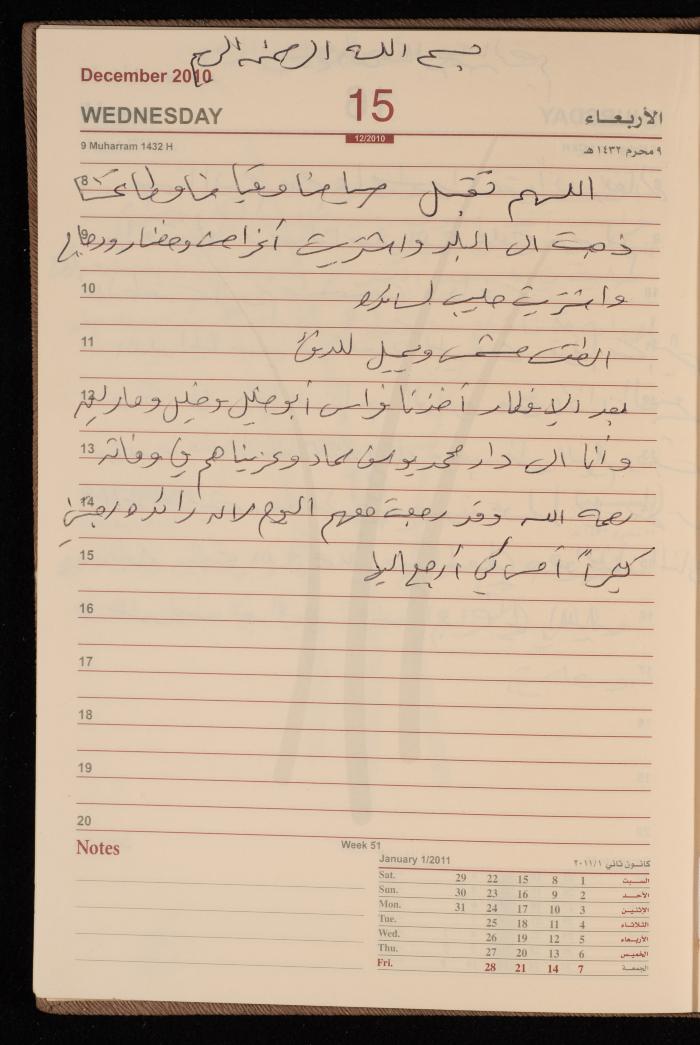 بسم الله الرحمن الرحيم
December 2010
WEDNESDAY
15
الأربعاء
12/2010
9 Muharram 1432 H
٩ محرم ١٤٣٢ هـ
8
اللهم تقبل صيامنا وقيامنا وطاعتنا
9
ذهبت الى البلد واشتريت أغراض وخضار ودجاج
10
واشتريت حليب
11
الطقس مشمس ويميل للدفئ
12
بعد الإفطار أخذنا فراس أبو خليل وخليل
13
وأنا الى دار محمد يوسف حماد وعزيناهم في وفاته
14
رحمه الله وقد رجعت معهم اليوم لأن رائده
15
كثيراً أمس كي أرجع اليها
16
17
18
19
20
Notes
Week 51
January 1/2011
كانون ثاني ٢٠١١/١
Sat. 29 22 15 8 1 السبت
Sun. 30 23 16 9 2 الأحد
Mon. 31 24 17 10 3 الإثنين
Tue. 25 18 11 4 الثلاثاء
Wed. 26 19 12 5 الأربعاء
Thu. 27 20 13 6 الخميس
Fri. 28 21 14 7 الجمعة